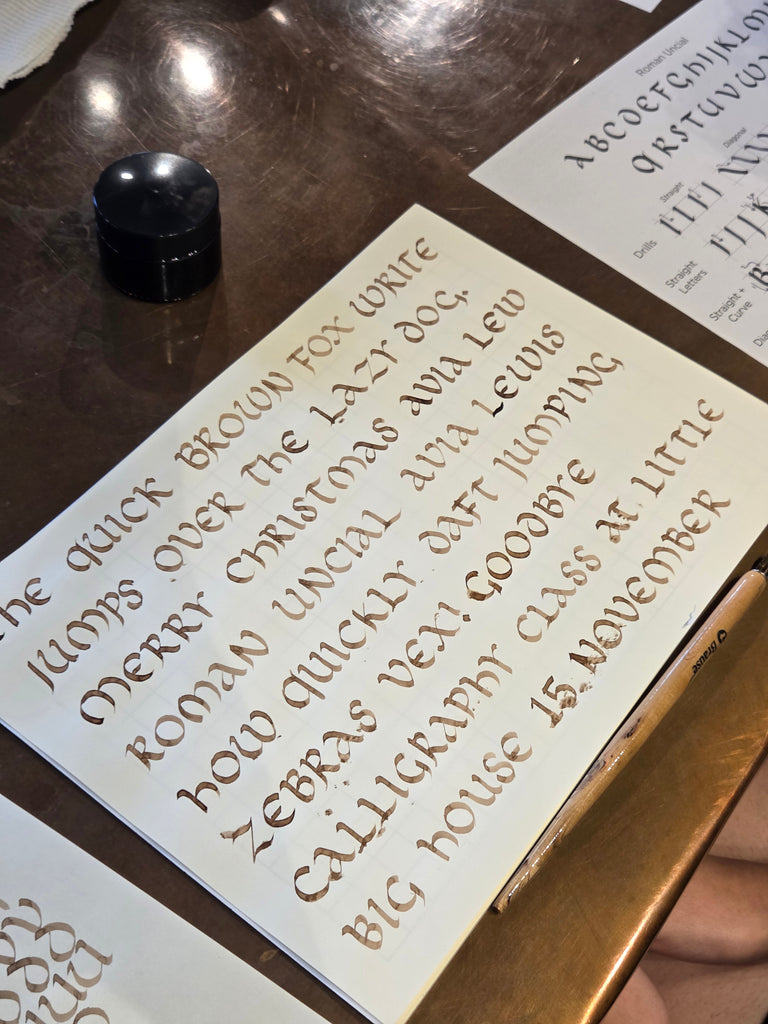 THE QUICK BROWN FOX WRITE
JUMPS OVER THE LAZY DOG.
MERRY CHRISTMAS AVIA LEW
ROMAN UNCIAL AVIA LEWIS
HOW QUICKLY DAFT JUMPING
ZEBRAS VEX! GOODBYE
CALLIGRAPHY CLASS AT LITTLE
BIG HOUSE 15 NOVEMBER
Roman Uncial
ABCDEFGHIJKLM
QRSTUVW
Straight
Diagonal
Drills
Straight
Letters
Straight +
Curve
Brause